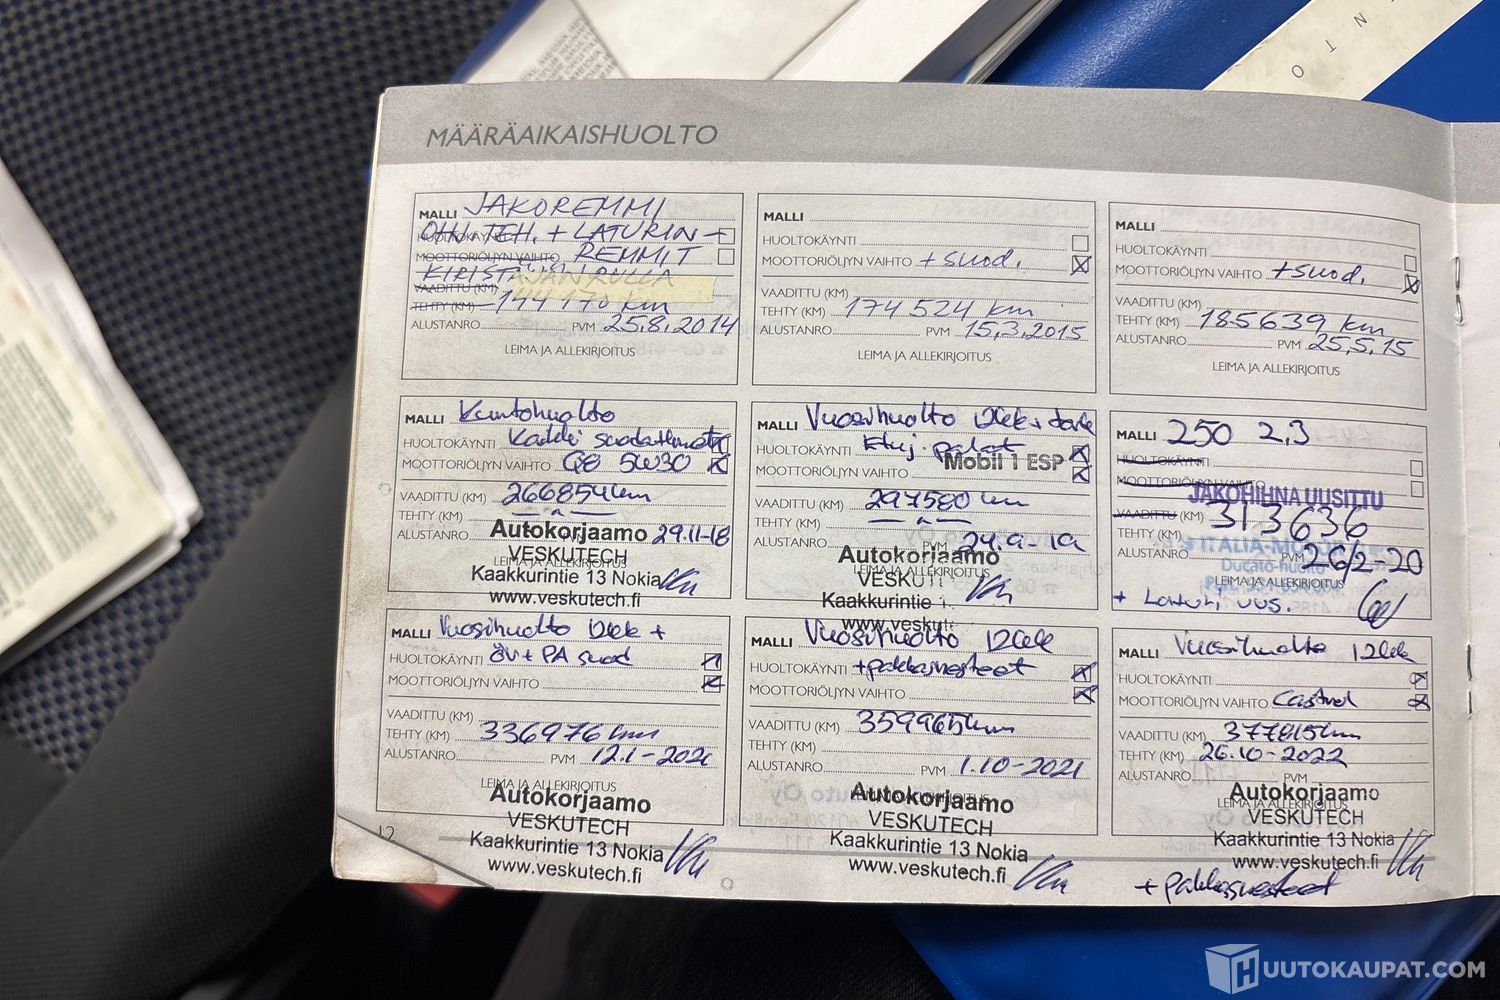 N T O
MÄÄRÄAIKAISHUOLTO
MALLI JAKOREMMI
OHJ.TEH. + LATURIN
HUOLTOKÄYNTI
MOOTTORIÖLJYN VAIHTO REMMIT
KIRISTÄJÄN RULLA
VAADITTU (KM)
TEHTY (KM) 144 170 km
ALUSTANRO PVM 25.8.2014
LEIMA JA ALLEKIRJOITUS
MALLI
HUOLTOKÄYNTI
MOOTTORIÖLJYN VAIHTO +suod.
VAADITTU (KM)
TEHTY (KM) 174 524 km
ALUSTANRO PVM 15.3.2015
LEIMA JA ALLEKIRJOITUS
MALLI
HUOLTOKÄYNTI
MOOTTORIÖLJYN VAIHTO +suod.
VAADITTU (KM)
TEHTY (KM) 185639 km
ALUSTANRO PVM 25.5.15
LEIMA JA ALLEKIRJOITUS
MALLI Kuntohuolto
HUOLTOKÄYNTI Kaikki
MOOTTORIÖLJYN VAIHTO Q8 5W30
VAADITTU (KM) 266854km
TEHTY (KM)
ALUSTANRO 29.11-18
LEIMA JA ALLEKIRJOITUS
Autokorjaamo
VESKUTECH
Kaakkurintie 13 Nokia
www.veskutech.fi
MALLI Vuosihuolto 12kk +
HUOLTOKÄYNTI Etuj. palat
Mobil 1 ESP
MOOTTORIÖLJYN VAIHTO
VAADITTU (KM) 297580 km
TEHTY (KM)
ALUSTANRO PVM 24.9-19
LEIMA JA ALLEKIRJOITUS
Autokorjaamo
VESKUT
Kaakkurintie 1
www.veskutech
MALLI 250 2,3
HUOLTOKÄYNTI
MOOTTORIÖLJYN VAIHTO
JAKOHIHNA UUSITTU
VAADITTU (KM)
TEHTY (KM) 313636
ALUSTANRO PVM 26/2-20
ITALIA-M
Ducato-huolto
LEIMA JA ALLEKIRJOITUS
+ Laturi uus.
MALLI Vuosihuolto 12kk +
HUOLTOKÄYNTI öv + PA suod
MOOTTORIÖLJYN VAIHTO
VAADITTU (KM)
TEHTY (KM) 336976 km
ALUSTANRO PVM 12.1-2021
LEIMA JA ALLEKIRJOITUS
Autokorjaamo
VESKUTECH
Kaakkurintie 13 Nokia
www.veskutech.fi
MALLI Vuosihuolto 12kk
HUOLTOKÄYNTI +pakkasnesteet
MOOTTORIÖLJYN VAIHTO
VAADITTU (KM) 359965km
TEHTY (KM)
ALUSTANRO PVM 1.10-2021
LEIMA JA ALLEKIRJOITUS
Autokorjaamo
VESKUTECH
Kaakkurintie 13 Nokia
www.veskutech.fi
MALLI Vuosihuolto 12kk
HUOLTOKÄYNTI
MOOTTORIÖLJYN VAIHTO Castrol
VAADITTU (KM) 377815km
TEHTY (KM) 26.10-2022
ALUSTANRO PVM
LEIMA JA ALLEKIRJOITUS
Autokorjaamo
VESKUTECH
Kaakkurintie 13 Nokia
www.veskutech.fi
+ pakkasnesteet
12
HUUTOKAUPAT.COM